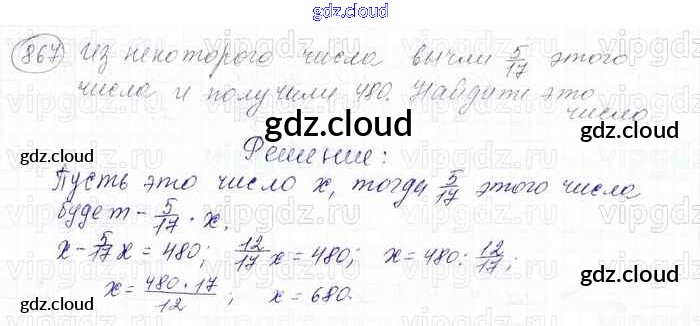 gdz.cloud
867 Из некоторого числа вычли 5/17 этого
числа и получили 480. Найдите это
число
gdz.cloud
gdz.cloud
Решение:
Пусть это число x, тогда 5/17 этого числа
будет - 5/17 · x.
x - 5/17 x = 480; 12/17 x = 480; x = 480 : 12/17;
x = 480·17/12; x = 680.
gdz.cloud
gdz.cloud